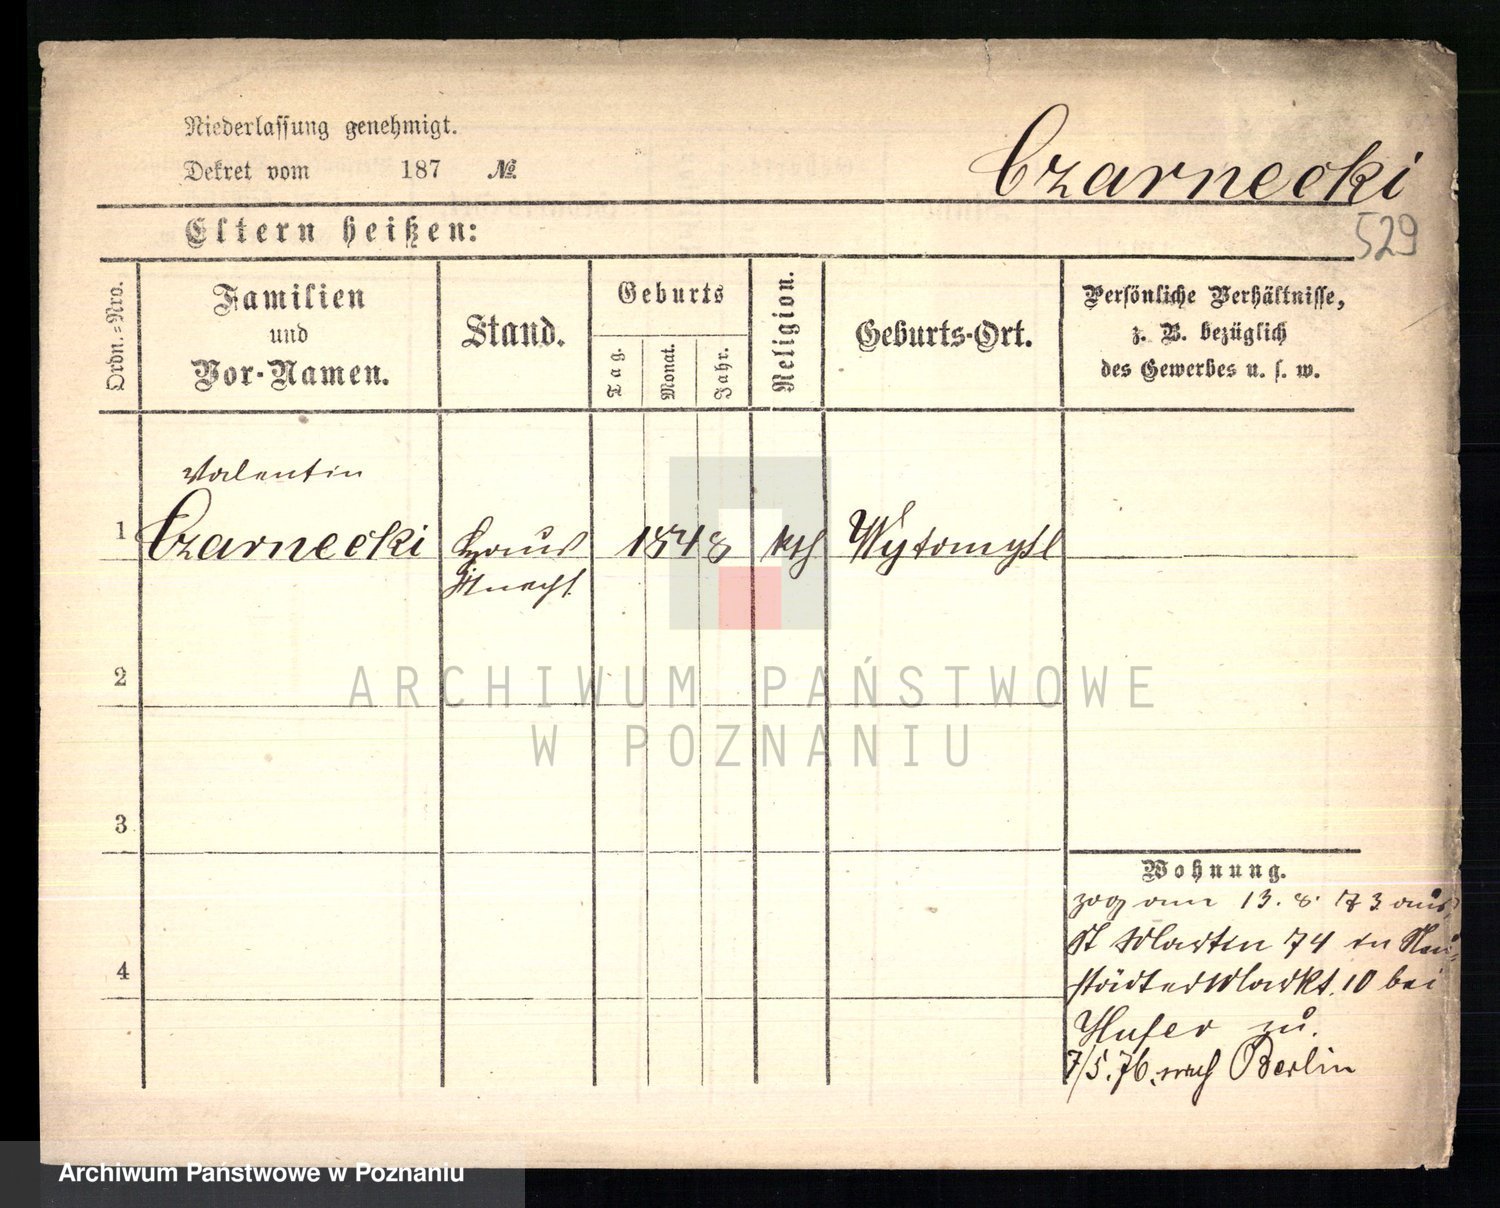 Niederlassung genehmigt.
Dekret vom 187 №
Czarnecki
Eltern heißen:
529
Ordn.-Nro.
Familien
und
Vor-Namen.
Stand.
Geburts
Tag.
Monat.
Jahr.
Religion.
Geburts-Ort.
Persönliche Verhältnisse,
z. B. bezüglich
des Gewerbes u. s. w.
Valentin
1 Czarnecki Haus 1848 kth Wytomysl
Knecht
2
ARCHIWUM PAŃSTWOWE
W POZNANIU
3
Wohnung.
zog am 13. 8. 73 aus
St Martin 74 in Neu-
städter Markt. 10 bei
zu.
4
7/5.76. nach Berlin
Archiwum Państwowe w Poznaniu